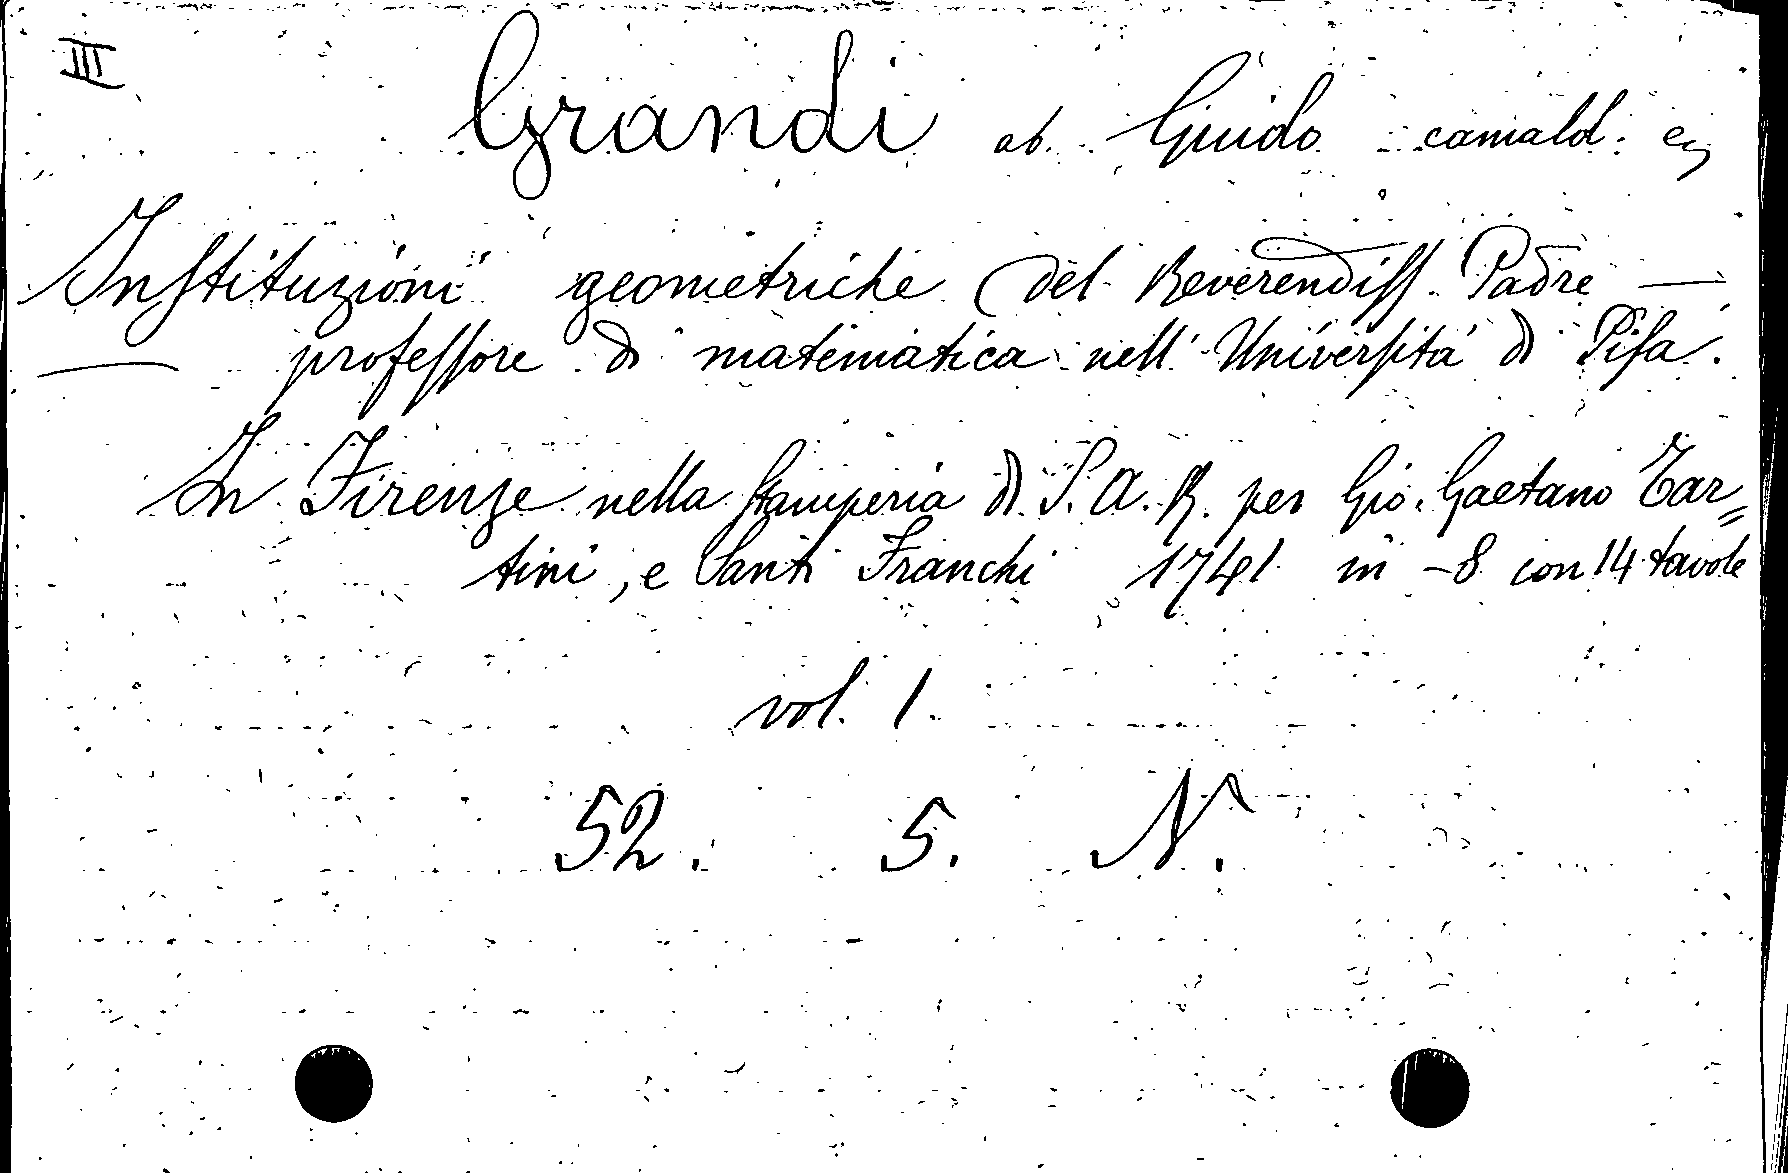 III
Grandi ab. Guido camald:
Institutzioni geometriche del Reverendiss. Padre —
— professore di matematica nell' Università di Pisa.
In Firenze nella stamperia di S. A. R. per Gio. Gaetano Tar=
tini, e Santi Franchi 1741 in -8 con 14 tavole
vol. 1.
52. 5. N.